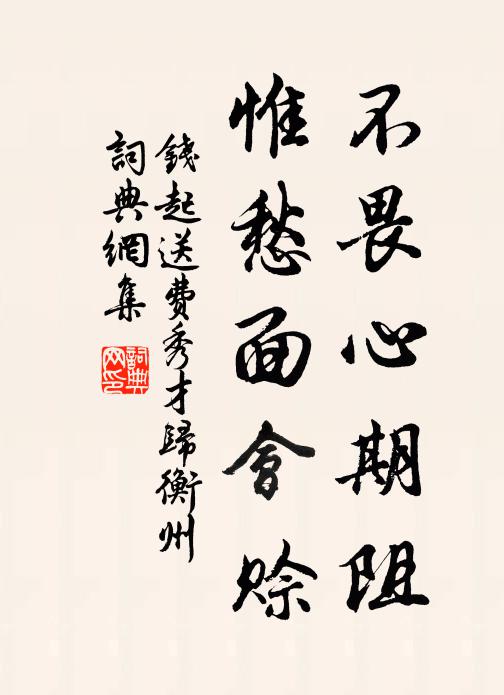 不畏心期阻
惟愁面會賒
錢起送费秀才歸衡州
詞典網集
詞典网印